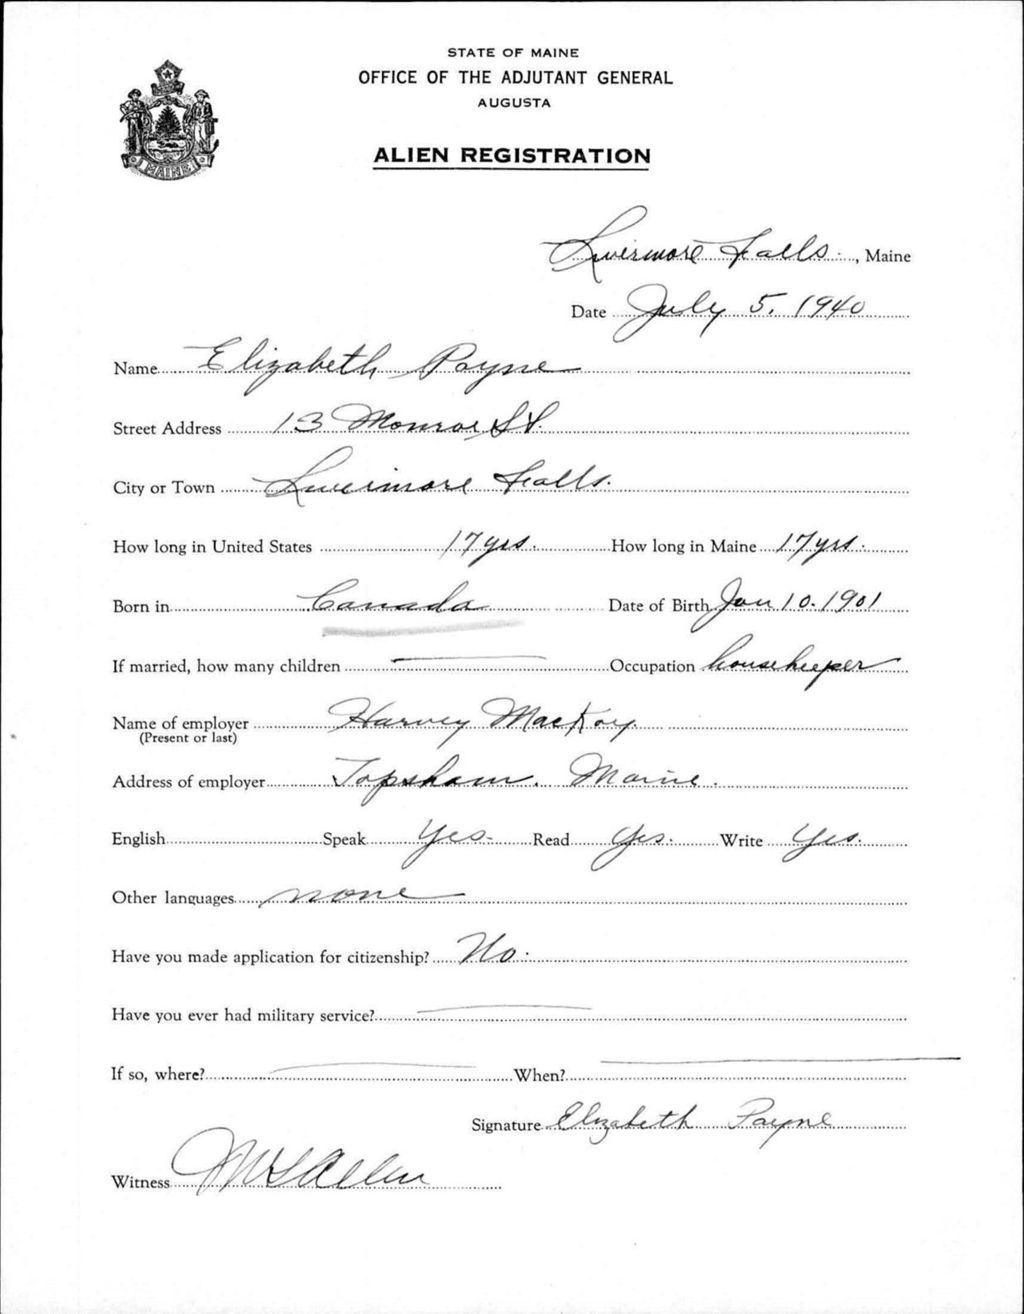 STATE OF MAINE
OFFICE OF THE ADJUTANT GENERAL
AUGUSTA
ALIEN REGISTRATION
MAINE
Livermore Falls, Maine
Date July 5, 1940
Name Elizabeth Payne
Street Address 13 Monroe St.
City or Town Livermore Falls.
How long in United States 17 yrs. How long in Maine 17 yrs.
Born in Canada Date of Birth Jan 10. 1901
If married, how many children — Occupation housekeeper
Name of employer Harvey MacKoy
(Present or last)
Address of employer Topsham. Maine.
English Speak Yes Read Yes. Write Yes.
Other languages none
Have you made application for citizenship? No.
Have you ever had military service? —
If so, where? — When? —
Signature Elizabeth Payne
Witness Allen